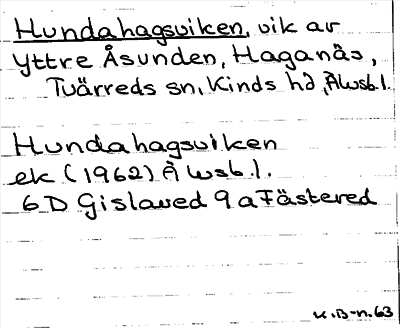 Hundahagsviken, vik av
Yttre Åsunden, Haganäs,
Tvärreds sn, Kinds hd, Älvsb. l.
Hundahagsviken
ek (1962) Älvsb. l.
6D Gislaved 9a Fästered
K.B-n. 63